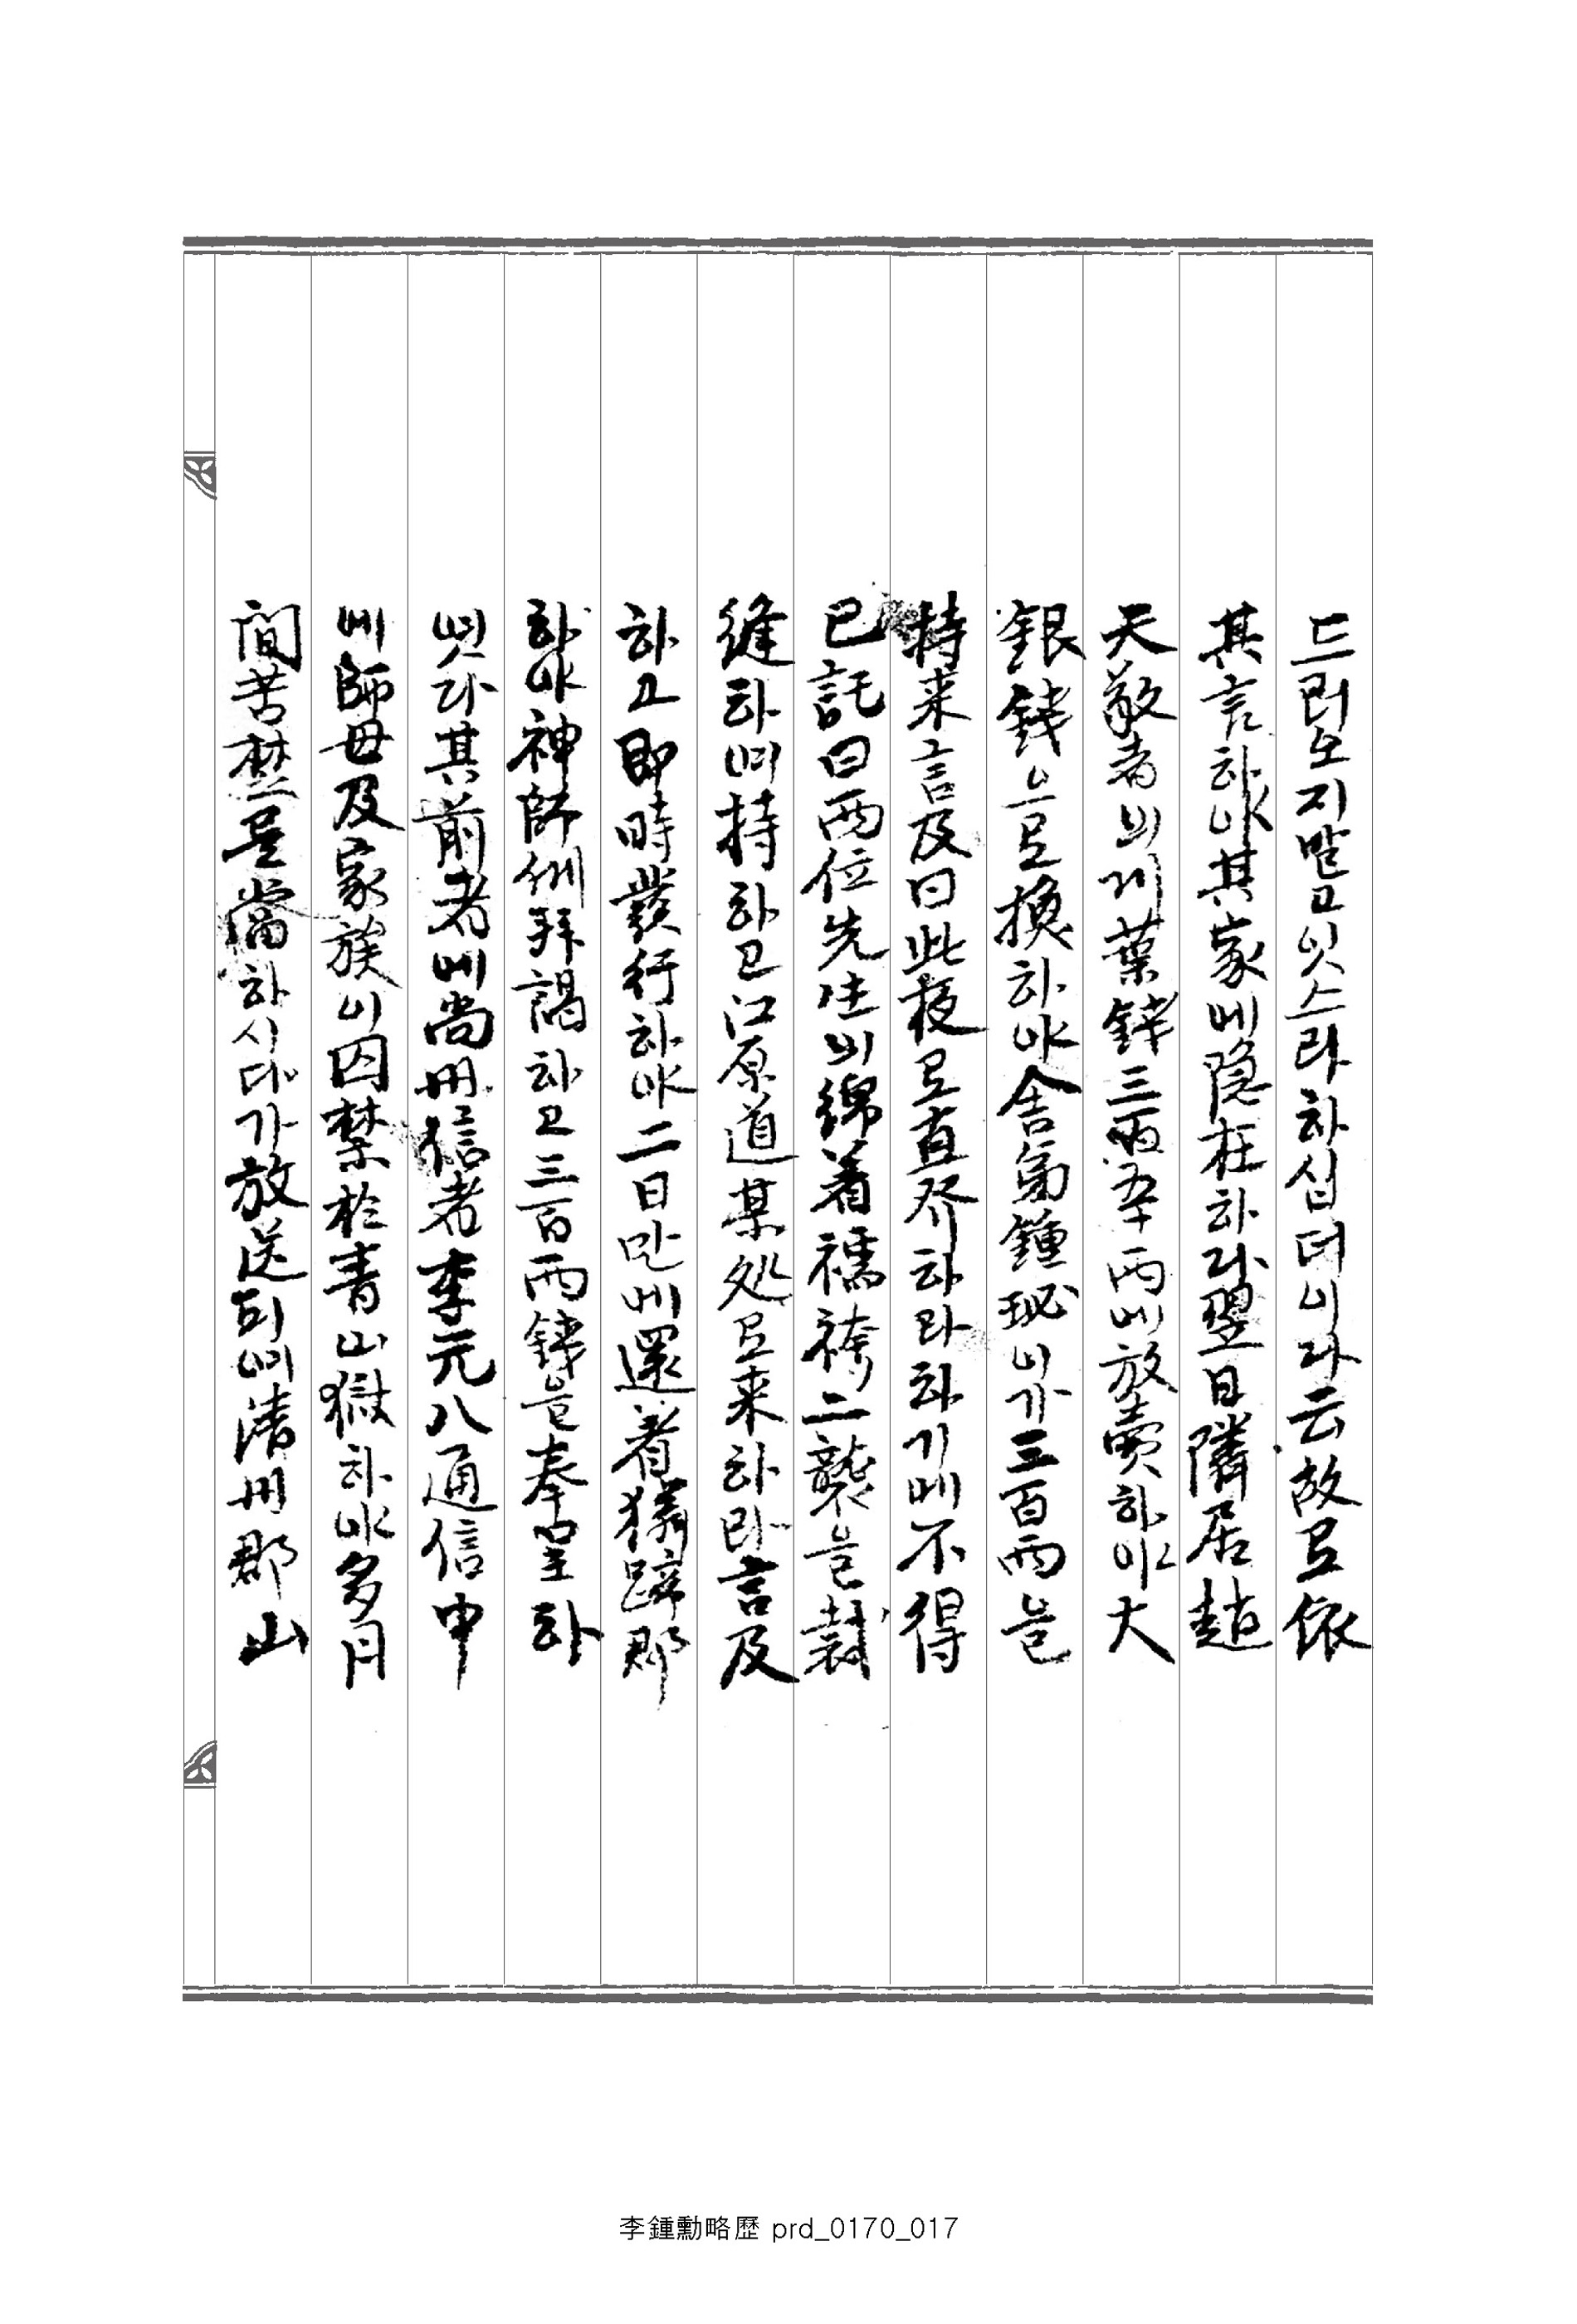 드러오지말고잇스라하십더이다云故로依
其言하야其家에隐在하다翌日隣居趙
天敬者의게葉錢三兩五千兩에放賣하야大
銀錢으로換하야舍弟鍾珌이가三百兩을
持来言及曰此梗로直発하라하기에不得
已託曰両位先生의綿着襦袴二襲을裁
縫하여持하고江原道某処로来하라言及
하고即時發行하야二日만에還着猪蹄郡
하야神師側拜謁하고三百両錢을奉呈하
엿다其前者에尚州信者李元八通信中
에師母及家族이囚禁於青山獄하야多月
間苦楚를當하시다가放送되여清州郡山
李鍾勳略歷 prd_0170_017